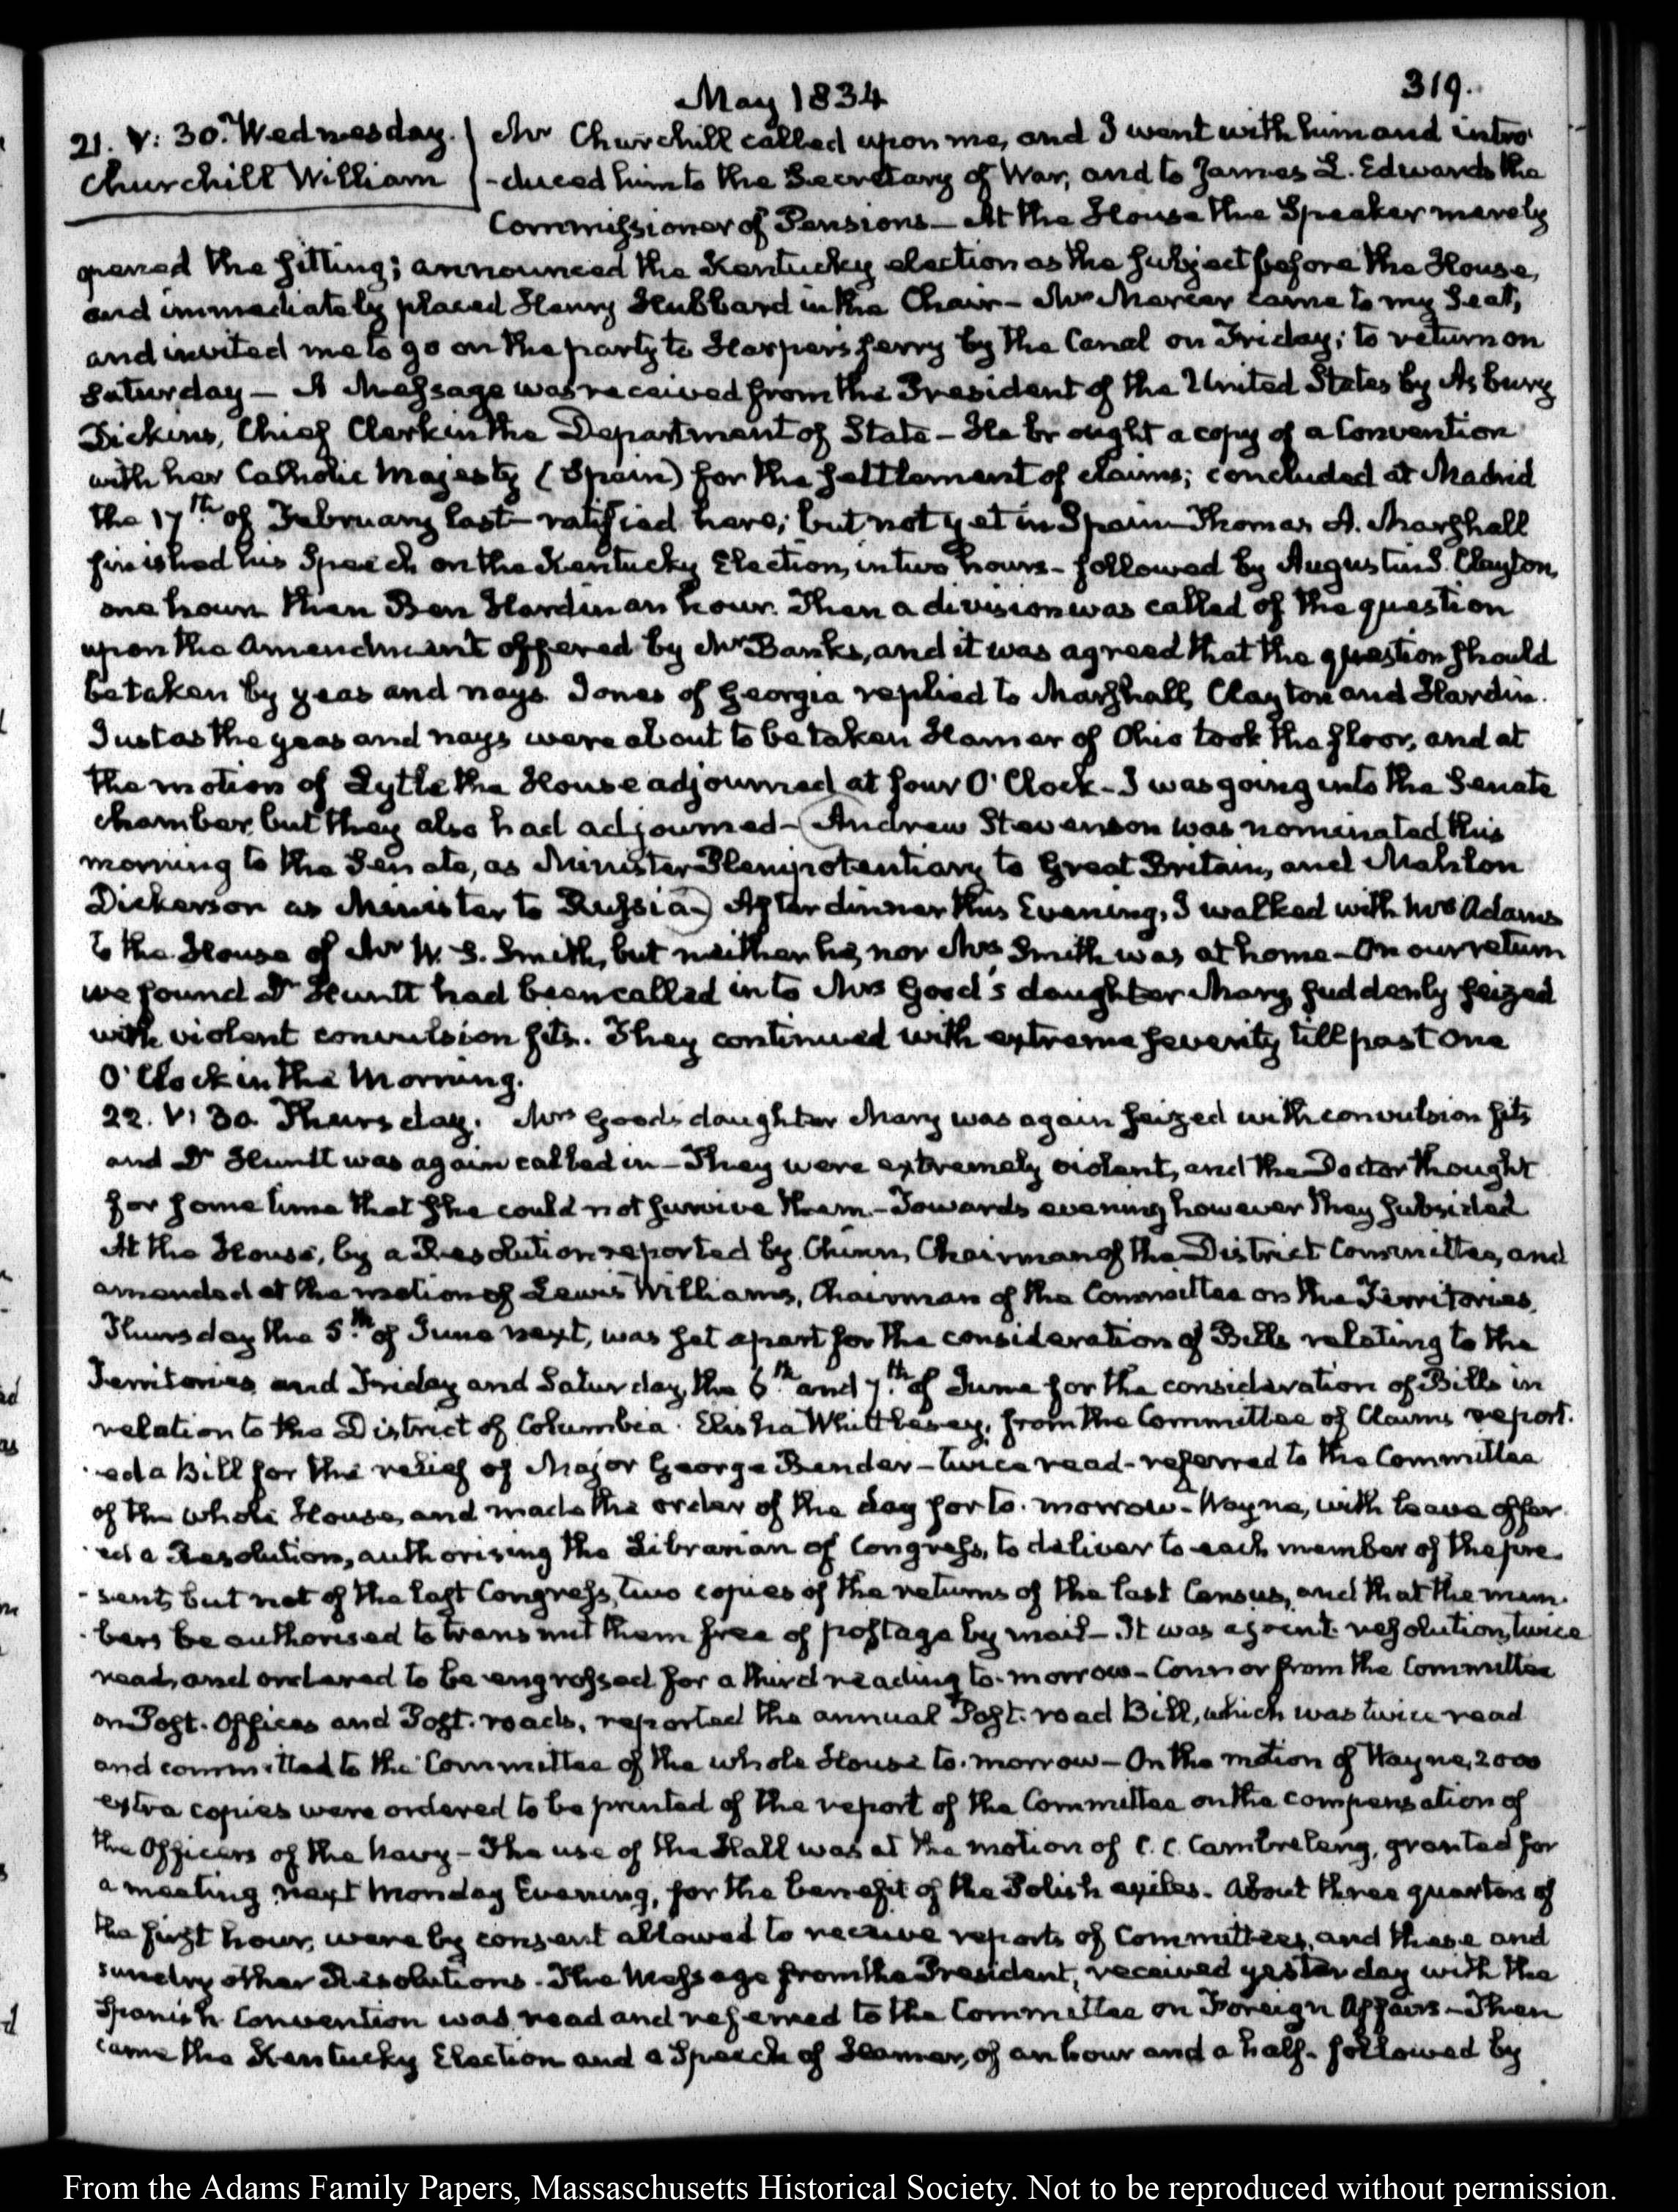 May 1834
319.
21. V: 30. Wednesday.
Churchill William
Mr Churchill called upon me, and I went with him and intro
-duced him to the Secretary of War, and to James L. Edwards the
Commissioner of Pensions — At the House the Speaker merely
opened the sitting; announced the Kentucky election as the subject before the House,
and immediately placed Henry Hubbard in the Chair — Mr Mercer came to my Seat,
and invited me to go on the party to Harper's ferry by the Canal on Friday; to return on
Saturday — A Message was received from the President of the United States by Asbury
Dickins, Chief Clerk in the Department of State — He brought a copy of a Convention
with her Catholic Majesty (Spain) for the settlement of claims; concluded at Madrid
the 17th of February last — ratified here; but not yet in Spain — Thomas A. Marshall
finished his Speech on the Kentucky Election, in two hours — followed by Augustin S. Clayton,
one hour. Then Ben Hardin an hour. Then a division was called of the question
upon the Amendment offered by Mr Banks, and it was agreed that the question should
be taken by yeas and nays. Jones of Georgia replied to Marshall, Clayton and Hardin.
Just as the yeas and nays were about to be taken Hamer of Ohio took the floor, and at
the motion of Lytle the House adjourned at four O'Clock — I was going into the Senate
chamber, but they also had adjourned — (Andrew Stevenson was nominated this
morning to the Senate, as Minister Plenipotentiary to Great Britain, and Mahlon
Dickerson as Minister to Russia —) After dinner this Evening, I walked with Mrs Adams
to the House of Mr W. S. Smith, but neither he, nor Mrs Smith was at home — On our return
we found Dr Huntt had been called in to Mrs Good's daughter Mary, suddenly seized
with violent convulsion fits. They continued with extreme severity till past One
O'Clock in the Morning.
22. V: 30. Thursday. Mrs Good's daughter Mary was again seized with convulsion fits
and Dr Huntt was again called in — They were extremely violent, and the Doctor thought
for some time that she could not survive them — Towards evening however they subsided
At the House, by a Resolution reported by Chinn, Chairman of the District Committee, and
amended at the motion of Lewis Williams, Chairman of the Committee on the Territories,
Thursday the 5th of June next, was set apart for the consideration of Bills relating to the
Territories and Friday and Saturday, the 6th and 7th of June for the consideration of Bills in
relation to the District of Columbia. Elisha Whittlesey, from the Committee of Claims report-
-ed a Bill for the relief of Major George Bender — twice read — referred to the Committee
of the whole House, and made the order of the day for to-morrow — Wayne, with leave offer-
-ed a Resolution, authorising the Librarian of Congress, to deliver to each member of the pre-
-sent, but not of the last Congress, two copies of the returns of the last Census, and that the mem-
-bers be authorised to transmit them free of postage by mail — It was a joint resolution, twice
read, and ordered to be engrossed for a third reading to-morrow — Connor from the Committee
on Post-Offices and Post-roads, reported the annual Post-road Bill, which was twice read
and committed to the Committee of the whole House to-morrow — On the motion of Wayne, 2000
extra copies were ordered to be printed of the report of the Committee on the compensation of
the Officers of the Navy — The use of the Hall was at the motion of C. C. Cambreleng, granted for
a meeting next Monday Evening, for the benefit of the Polish exiles. About three quarters of
the first hour, were by consent allowed to receive reports of Committees, and these and
sundry other Resolutions. The Message from the President, received yesterday with the
Spanish Convention was read and referred to the Committee on Foreign Affairs — Then
came the Kentucky Election and a Speech of Hamer, of an hour and a half — followed by
From the Adams Family Papers, Massachusetts Historical Society. Not to be reproduced without permission.